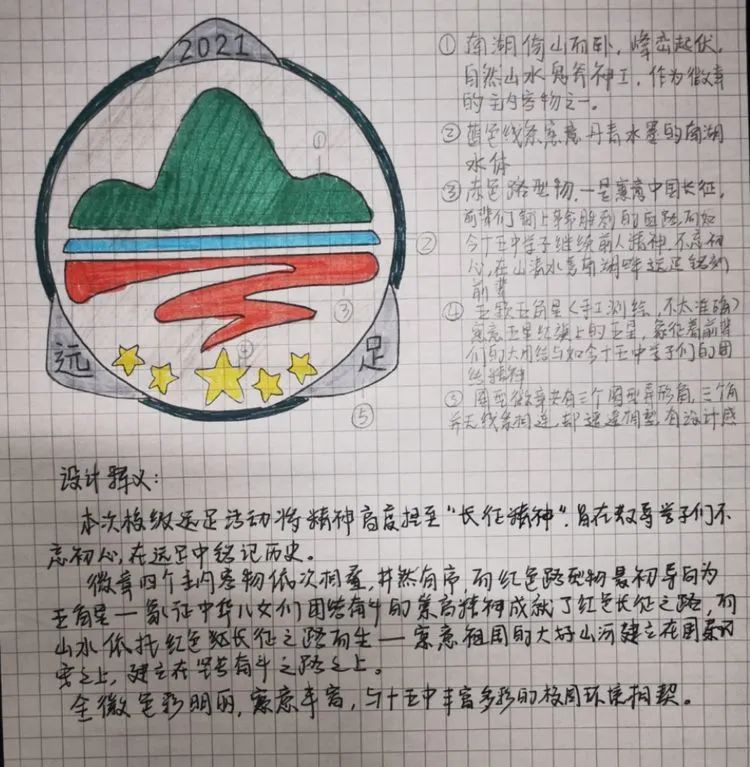 2021
远
足
①
②
③
④
⑤
① 南湖倚山而卧，峰峦起伏，
自然山水鬼斧神工，作为徽章
的主内容物之一。
② 蓝色线条寓意丹青水墨的南湖
水体
③ 赤色路型物，一是寓意中国长征，
前辈们踏上革命胜利的道路，而如
今十五中学子继续前人精神，不忘初
心，在山清水秀南湖畔远足铭刻
前辈
④ 五颗五角星（手工测绘，不太准确）
寓意五星红旗上的五星，象征着前辈
们的大团结与如今十五中学子们的团
结精神
⑤ 圆型徽章共有三个圆型异形角，三个角
并无线条相连，却遥遥相望，有设计感
设计释义：
本次校级远足活动将精神高度提至“长征精神”，旨在教导学子们不
忘初心，在远足中铭记历史。
徽章四个主内容物依次相叠，井然有序，而红色路型物最初导向为
五角星—象征中华儿女们团结奋斗的崇高精神成就了红色长征之路，而
山水依托红色长征之路而生—寓意祖国的大好山河建立在国家
之上，建立在奋斗之路之上。
全徽色彩明丽，寓意丰富，与十五中丰富多彩的校园环境相契。